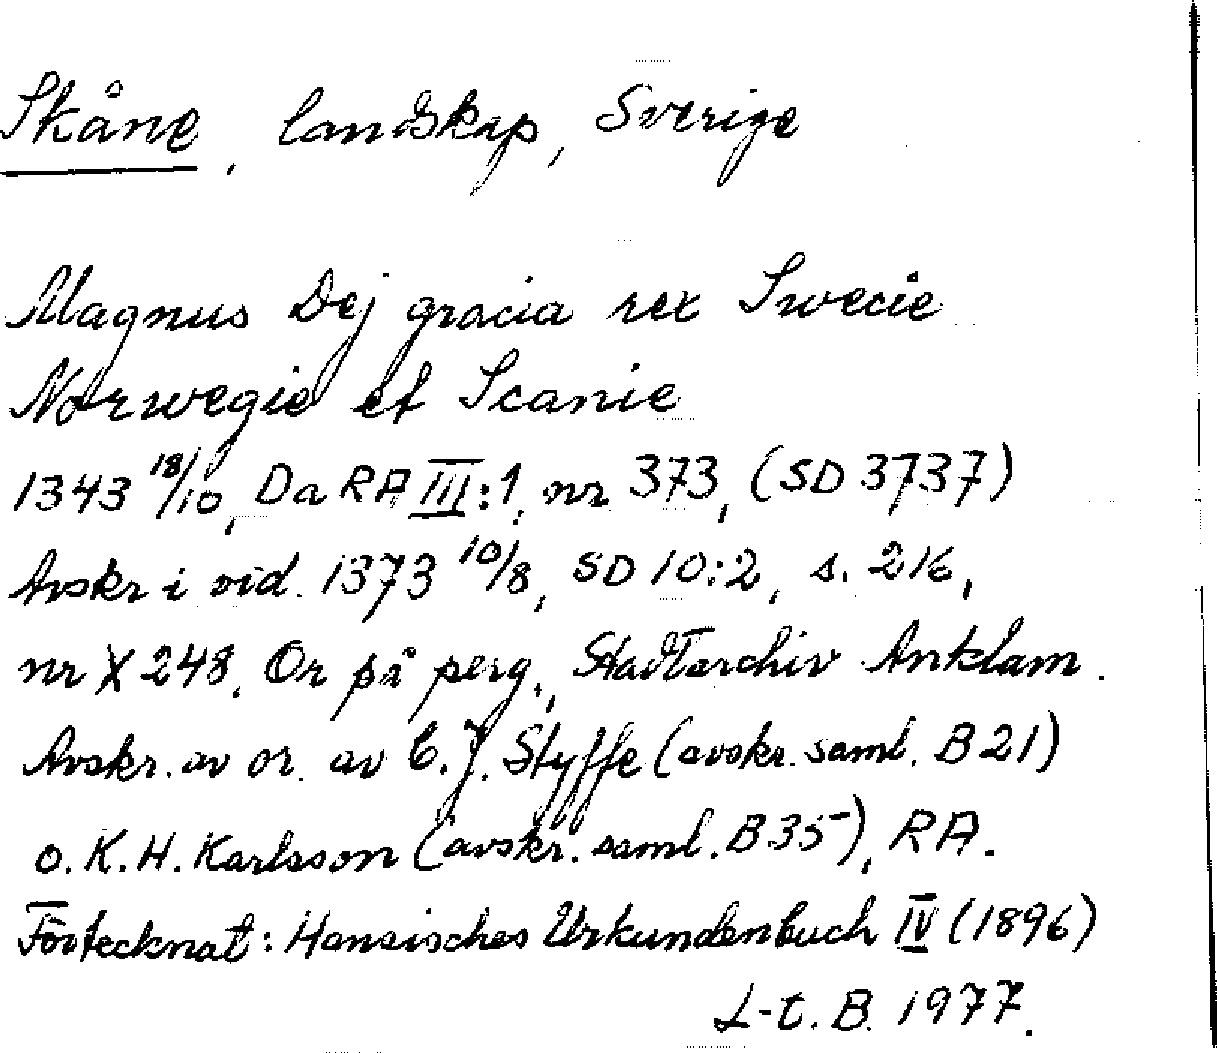 Skåne, landskap, Sverige
Magnus Dej gracia rex Swecie
Norwegie et Scanie
1343 18/10, Da RA III:1, nr 373, (SD 3737)
Avskr i vid. 1373 10/8, SD 10:2, s. 216,
nr X 248. Or på perg., Stadtarchiv Anklam.
Avskr. av or. av C. J. Styffe (avskr. saml. B 21)
o. K. H. Karlsson (avskr. saml. B 35), RA.
Förtecknat: Hansisches Urkundenbuch IV (1896)
L-t. B. 1977.